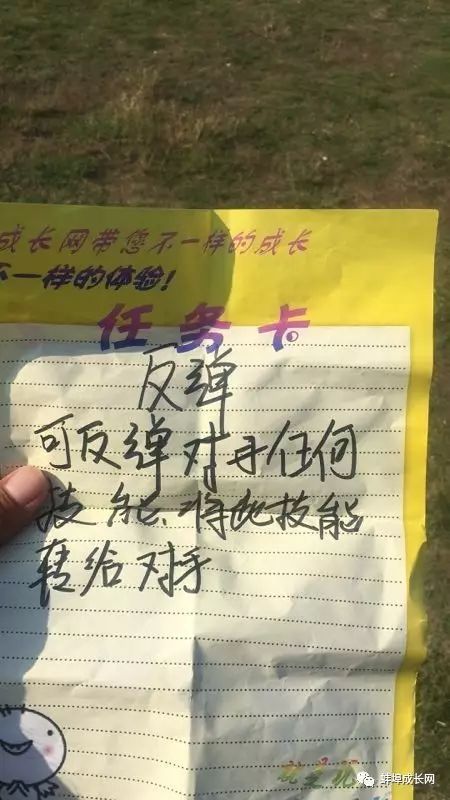 成长网带您不一样的成长
不一样的体验!
任务卡
反弹
可反弹对手任何
技能.将此技能
转给对手
蚌埠成长网